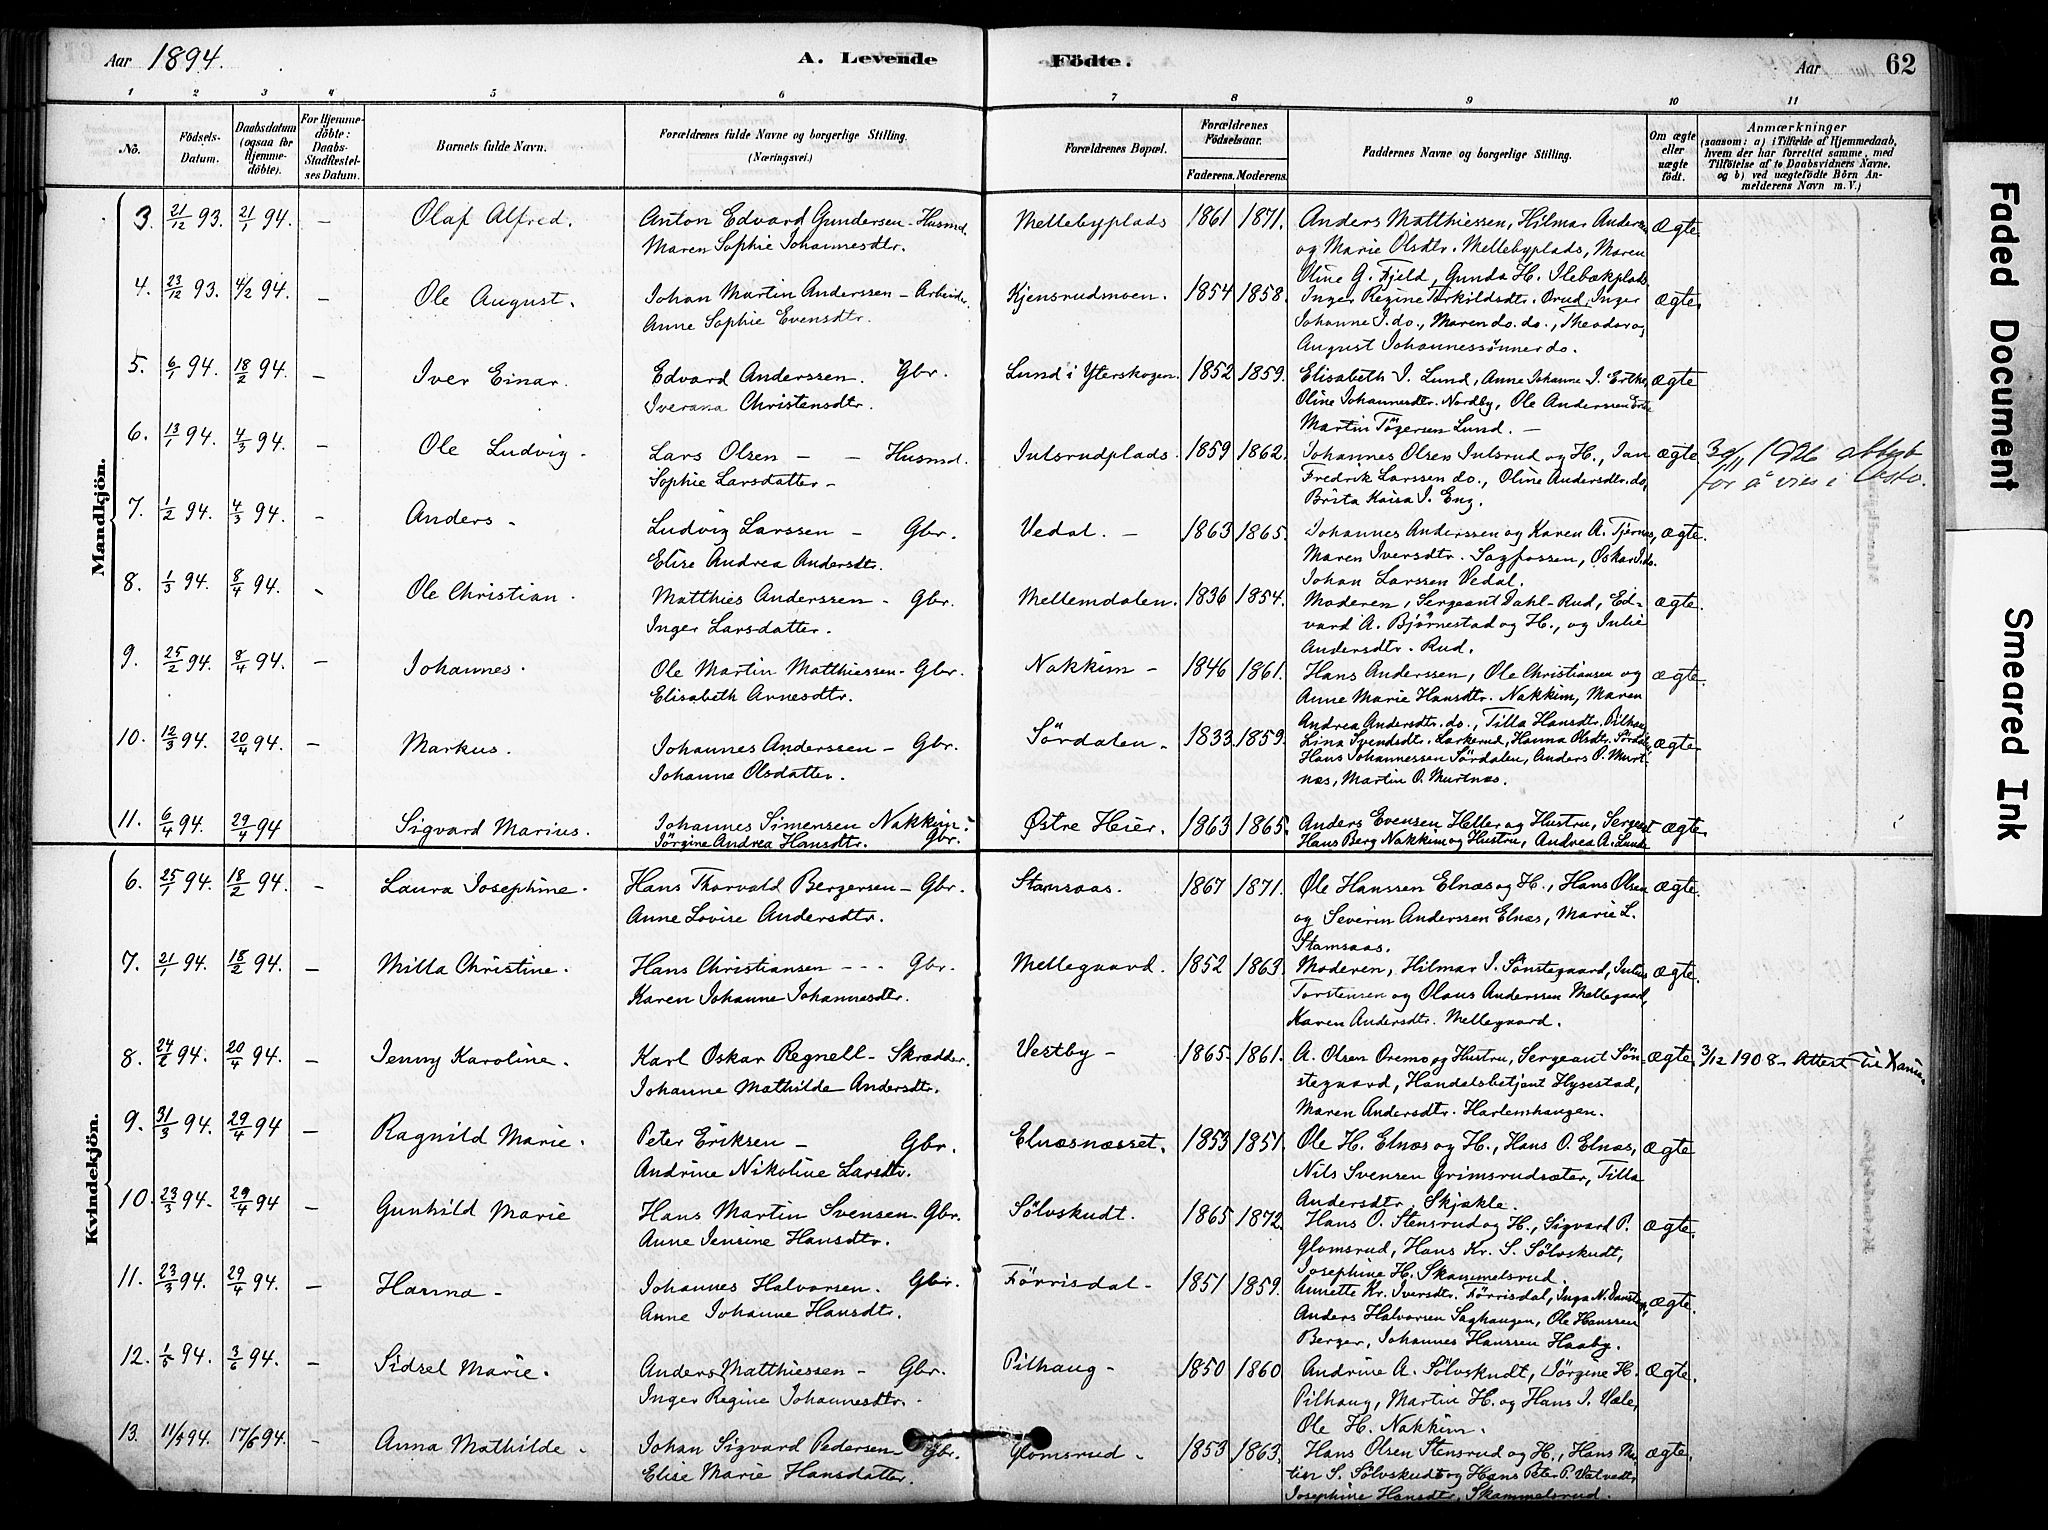 Aar 1894. A. Levende Födte. Aar 62
1 2 3 4 5 6 7 8 9 10 11
No. Födsels-Datum. Daabsdatum (ogsaa for Hjemmedöbte). For Hjemmedöbte: Daabs-Stadfæstelses Datum. Barnets fulde Navn. Forældrenes fulde Navne og borgerlige Stilling. (Næringsvei.) Forældrenes Bopæl. Forældrenes Födselsaar. Faderens. Moderens. Faddernes Navne og borgerlige Stilling. Om ægte eller uægte födt. Anmærkninger (saasom: a) i Tilfælde af Hjemmedaab, hvem der har forrettet samme, med Tilföielse af to Daabsvidners Navne, og b) ved uægtefödte Börn Anmelderens Navn m. V.)
Mandkjön.
3. 21/12 93. 21/1 94. – Olaf Alfred. Anton Edvard Gundersen – Husmd. Mellebyplads 1861 1871. Anders Matthiessen, Hilmar Anders ægte.
Maren Sophie Johannesdtr. og Marie Olsdtr. Mellebyplads, Maren
Oline G. Fjeld, Gunda H. Ilebækplads
4. 23/12 93. 4/2 94. – Ole August. Johan Martin Anderssen – Arbeider Kjensrudmoen. 1854 1858. Inger Regine Torkildsdtr. Ørud, Inger ægte.
Anne Sophie Evensdtr. Johanne J. do., Maren do. do., Theodor og
August Johannessönner do.
5. 6/1 94. 18/2 94. – Iver Einar. Edvard Anderssen. Gbr. Lund i Ytterskogen. 1852 1859. Elisabeth J. Lund, Anne Johanne J. Erthe, ægte
Iverana Christensdtr. Oline Johannesdtr. Nordby, Ole Anderssen Erthe
Martin Tögersen Lund. –
6. 13/1 94. 4/3 94. – Ole Ludvig. Lars Olsen – – Husmd. Julsrudplads. 1859 1862. Johannes Olsen Julsrud og H., Jan ægte. 30/11 1926 attest
Sophie Larsdatter – Fredrik Larssen do., Oline Andersdtr. do, for å vies i Oslo.
Brita Kaisa J. Eng.
7. 1/2 94. 4/3 94. – Anders – Ludvig Larssen – Gbr. Vedal. – 1863 1865. Johannes Anderssen og Karen A. Tjernæs, ægte.
Elise Andrea Andersdt. Maren Iversdtr. Sagfossen, Oskar J. do.
Johan Larssen Vedal.
8. 1/3 94. 8/4 94. – Ole Christian. Matthies Anderssen – Gbr. Mellemdalen. 1836 1854. Moderen, Sergeant Dahl-Rud, Ed- ægte.
Inger Larsdatter. vard A. Björnestad og H., og Julie
Andersdtr. Rud.
9. 25/2 94. 8/4 94. – Johannes. Ole Martin Matthiessen – Gbr. Nakkim – 1846 1861. Hans Anderssen, Ole Christiansen og ægte.
Elisabeth Arnesdtr. Anne Marie Hansdtr. Nakkim, Maren
Andrea Andersdtr. do., Tilla Hansdtr. Pilhaug
10. 12/3 94. 20/4 94. – Markus. Johannes Anderssen – Gbr. Sördalen – 1833 1859. Lina Svendsdtr. Larkerud, Hanna Olsdtr. Sördalen ægte.
Johanne Olsdatter. Hans Johannessen Sördalen, Anders O. Murt-
næs, Martin O. Murtnæs.
11. 6/4 94. 29/4 94 Sigvard Marius. Johannes Simensen Nakkim. Østre Heier. 1863 1865. Anders Evensen Heller og Hustru, Sergent ægte.
Jörgine Andrea Hansdtr. Gbr. Hans Berg Nakkim og Hustru, Andrea A. Lunde
Kvindekjön.
6. 25/1 94. 18/2 94. – Laura Josephine. Hans Thorvald Bergersen – Gbr. Stamsaas. 1867 1871. Ole Hanssen Elnæs og H., Hans Olsen ægte.
Anne Lovise Andersdtr. og Severin Anderssen Elnæs, Marie L.
Stamsaas.
7. 21/1 94. 18/2 94. – Milla Christine. Hans Christiansen – – – Gbr. Mellegaard. 1852 1863. Moderen, Hilmar J. Sönstegaard, Julius ægte.
Karen Johanne Johannesdtr. Torstensen og Olaus Anderssen Mellegaard,
Karen Andersdtr. Mellegaard.
8. 24/2 94. 20/4 94. – Jenny Karoline. Karl Oskar Regnell – Skrædder. Vestby – 1865. 1861. A. Olsen Oremo og Hustru, Sergeant Sön- ægte. 3/12 1908 – Attest til
Johanne Mathilde Andersdtr. stegaard, Handelsbetjent Hysestad,
Maren Andersdtr. Harlemshaugen.
9. 31/3 94. 29/4 94 – Ragnild Marie. Peter Eriksen – Gbr. Elnæsnæsset. 1853 1851. Ole H. Elnæs og H., Hans O. Elnæs, ægte
Andrine Nikoline Larsdtr. Nils Svensen Grimsrudsæter, Tilla
Andersdtr. Skjækle.
10. 23/3 94. 29/4 94 – Gunhild Marie Hans Martin Svensen – Gbr. Sölvskudt. 1865 1872. Hans O. Stensrud og H., Sigvard P. ægte.
Anne Jensine Hansdtr. Glomsrud, Hans Kr. S. Sölvskudt,
Josephine H. Skammelsrud.
11. 23/3 94. 29/4 94. – Hanna – Johannes Halvorsen. Gbr. Förrisdal – 1851 1859. Annette Kr. Iversdtr. Förrisdal, Inga N. ægte.
Anne Johanne Hansdtr. Anders Halvorsen Saghaugen, Ole Hanssen
Berger, Johannes Hanssen Haaby.
12. 1/5 94. 3/6 94. – Sidsel Marie. Anders Matthiessen – Gbr. Pilhaug – 1850 1860 Andrine A. Sölvskudt, Jörgine H. ægte.
Inger Regine Johannesdtr. Pilhaug, Martin H. og Hans J. Vale,
Ole H. Nakkim.
13. 11/5 94. 17/6 94. – Anna Mathilde – Johan Sigvard Pedersen – Gbr. Glomsrud – 1853 1863. Hans Olsen Stensrud og H., Hans Mar- ægte.
Elise Marie Hansdatter. tin S. Sölvskudt og Hans Peter P. Valvedt,
Josephine Hansdtr. Skammelsrud.
Faded Document
Smeared Ink